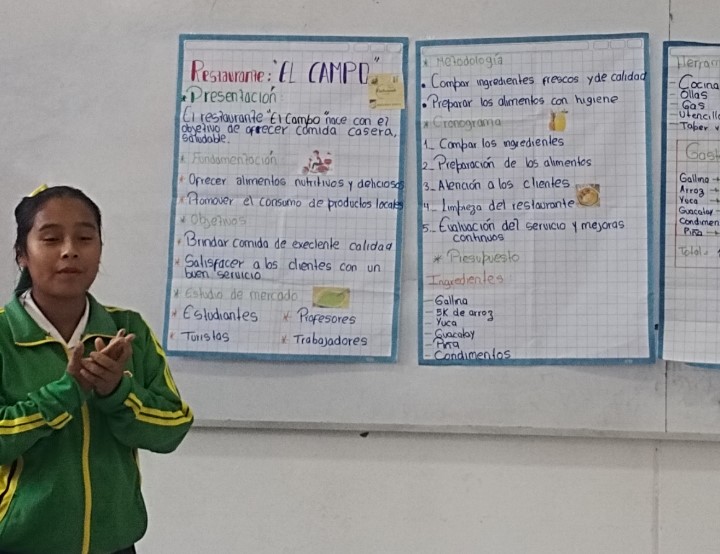 Restaurante: "EL CAMPO"
• Presentación
El restaurante "El Campo" nace con el
objetivo de ofrecer comida casera,
saludable.
* Fundamentación
* Ofrecer alimentos nutritivos y deliciosos
* Promover el consumo de productos locales
* Objetivos
* Brindar comida de execlente calidad
* Satisfacer a los clientes con un
buen servicio
* Estudio de mercado
* Estudiantes * Profesores
* Turistas * Trabajadores
* Metodología
• Compar ingredientes frescos y de calidad
• Preparar los alimentos con higiene
* Cronograma
1_ Compar los ingredientes
2_ Preparación de los alimentos
3_ Atención a los clientes
4_ Limpieza del restaurante
5_ Evaluación del servicio y mejoras
continuos
* Presupuesto
Ingredientes
- Gallina
- 5K de arroz
- Yuca
- Guacalay
- Piña
- Condimentos
Herram
- Cocina
- Ollas
- Gas
- Utencill
- Taper
Gast
Gallina →
Arroz →
Yuca →
Guacalay
Condimen
Piña →
Total